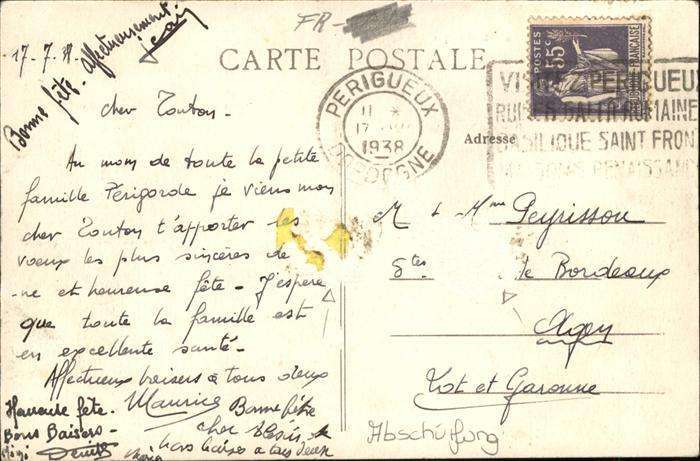 17-7-38
Bonne fête. affectueusement.
Jean
FR-
CARTE POSTALE
POSTES
55c
FRANÇAISE
PERIGUEUX
11
17
1938
DORDOGNE
VISITEZ PERIGUEUX
RUINES GALLO ROMAINES
BASILIQUE SAINT FRONT
MAISONS RENAISSANCE
Adresse
cher Tonton.
Au nom de toute la petite
famille Périgorde je viens mon
cher Tonton t'apporter les
voeux les plus sincères de
-ne et heureuse fête - J'espère
que toute la famille est
en excellente santé-
Affectueux baisers à tous deux
Maurice
Heureuse fête.
Bons Baisers-
Denise
Bonne fête
cher
bons baisers à tous deux
M & Mme Peyrissou
de Bordeaux
Agen
Lot et Garonne
Abschürfung